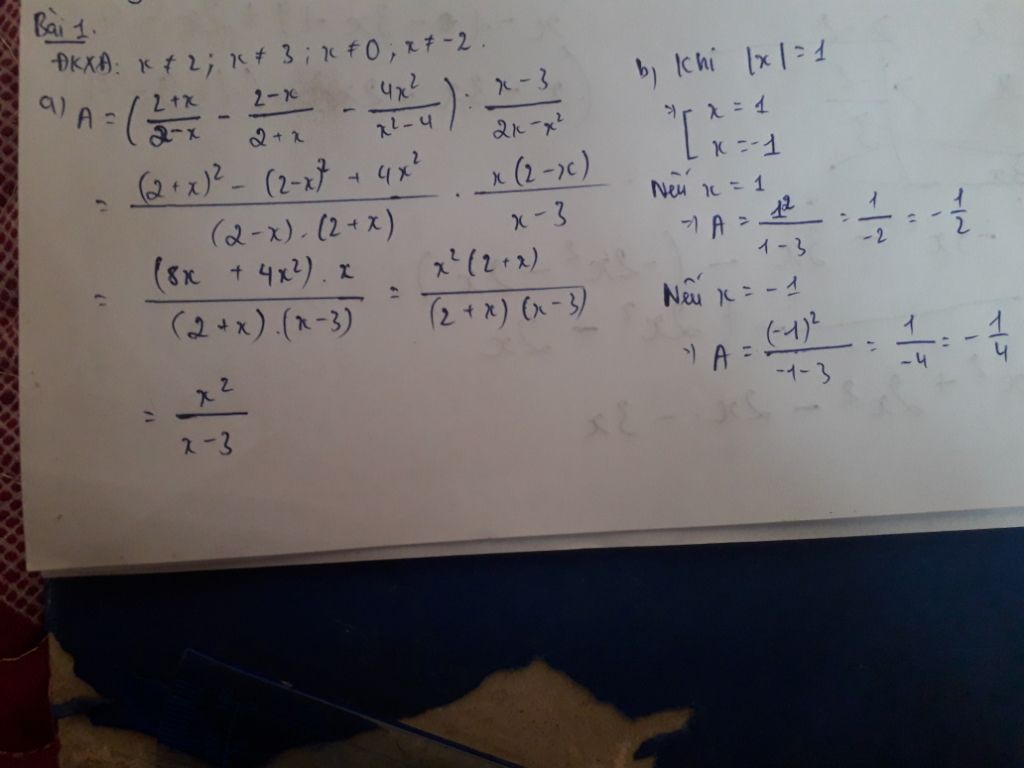 Bài 1.
ĐKXĐ: x ≠ 2; x ≠ 3; x ≠ 0; x ≠ -2.
a) A = ( (2+x)/(2-x) - (2-x)/(2+x) - 4x²/(x²-4) ) : (x-3)/(2x-x²)
= ((2+x)² - (2-x)² + 4x²)/((2-x).(2+x)) . x(2-x)/(x-3)
= ((8x + 4x²).x)/((2+x).(x-3)) = x²(2+x)/((2+x)(x-3))
= x²/(x-3)
b, Khi |x| = 1
=> [ x = 1
x = -1
Nếu x = 1
=> A = 1²/(1-3) = 1/-2 = -1/2
Nếu x = -1
=> A = (-1)²/(-1-3) = 1/-4 = -1/4